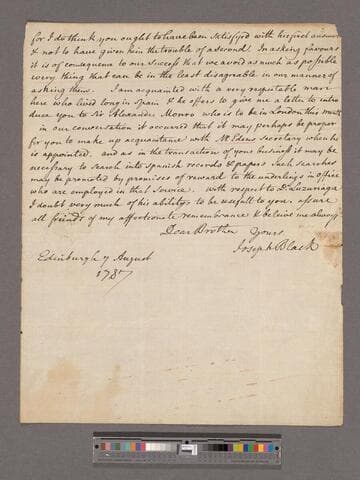 for I do think you ought to have been satisfyd with his first answer
& not to have given him the trouble of a second. In asking favours
it is of consequence to our success that we avoid as much as possible
every thing that can be in the least disagreable in our manner of
asking them. I am acquainted with a very respectable man
here who lived long in Spain & he offers to give me a letter to intro
duce you to Sir Alexander Monro who is to be in London this month
in our conversation it occurred that it may perhaps be proper
for you to make up acquaintance with Mr Edens secretary when he
is appointed. and as in the transaction of your business it may be
necessary to search into spanish records & papers Such searches
may be promoted by promises of reward to the underlings in office
who are employed in that Service. With respect to Dr Luzuriaga
I doubt very much of his ability to be usefull to you. assure
all friends of my affectionate remembrance & beleive me always
Dear Brother Yours
Joseph Black
Edinburgh 7 August
1787